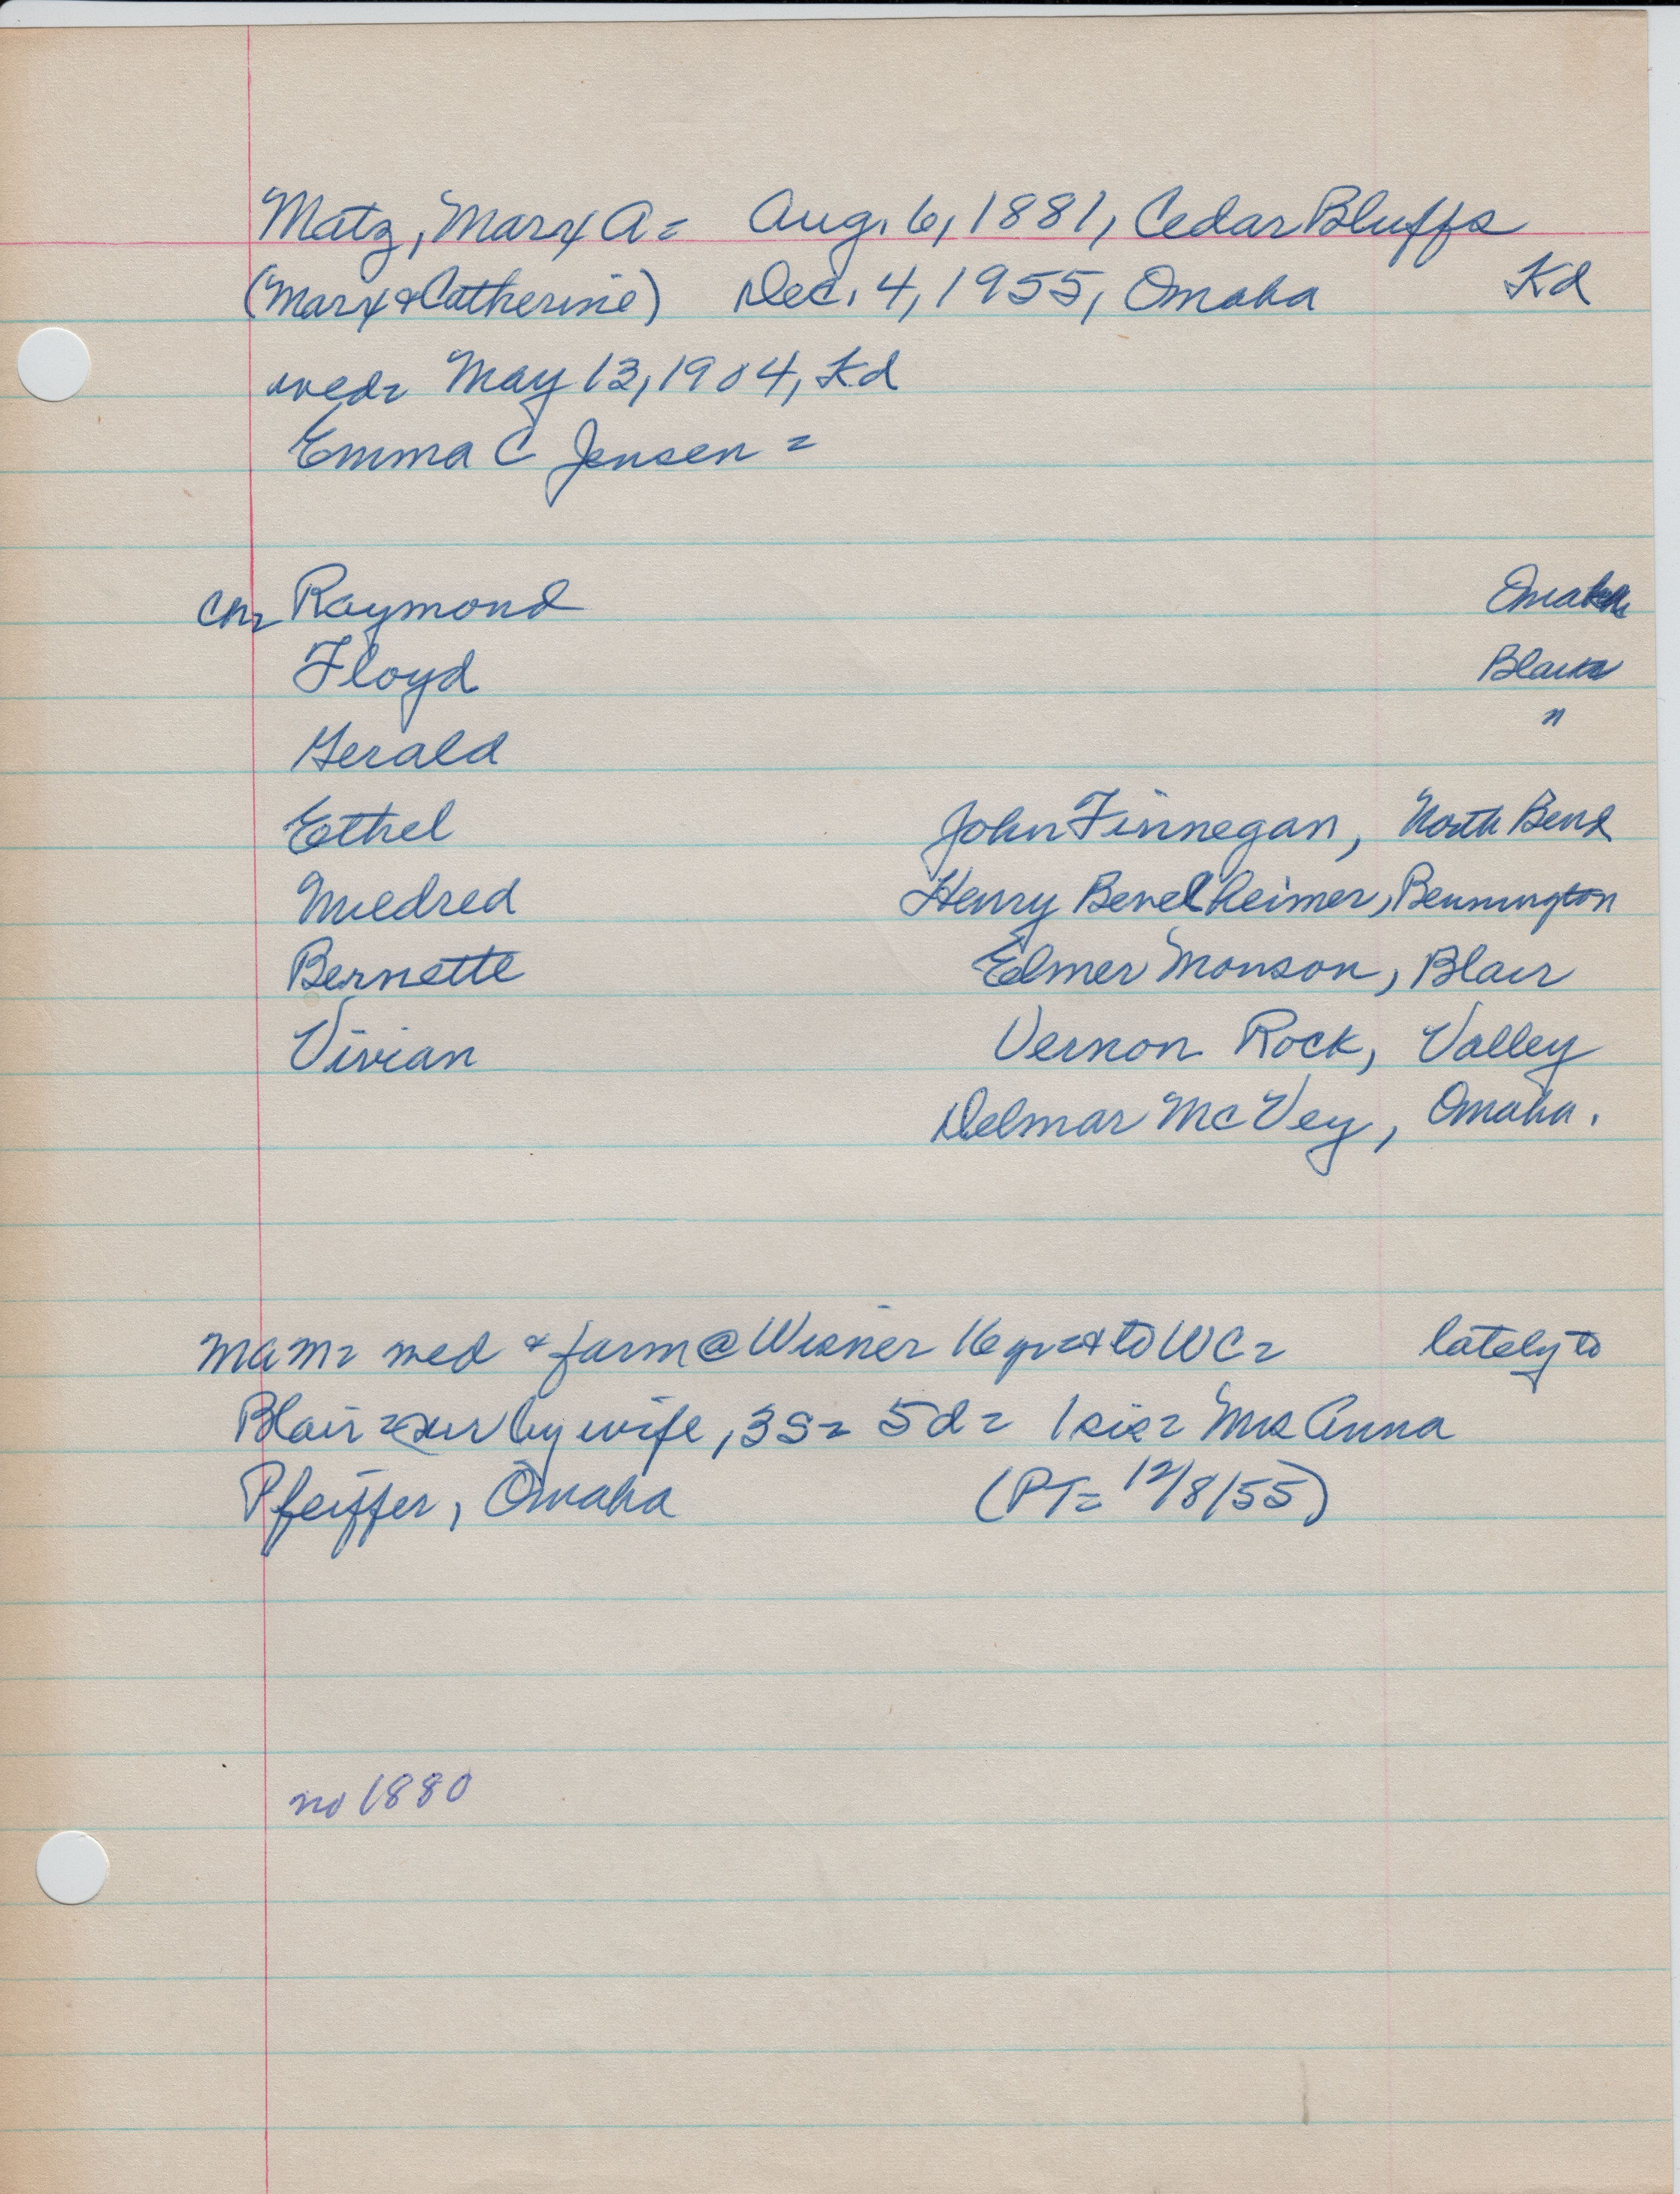 Matz, Marx A = Aug. 6, 1881, Cedar Bluffs
(Marx & Catherine) Dec. 4, 1955, Omaha Kd
wed = May 13, 1904, Kd
Emma C Jensen =
Ch = Raymond Omaha
Floyd Blair
Gerald "
Ethel John Finnegan, North Bend
Mildred Henry Bevelheimer, Bennington
Bernette Elmer Monson, Blair
Vivian Vernon Rock, Valley
Delmar McVey, Omaha.
MAM = wed & farm @ Wisner 16 yr = & to WC = lately to
Blair = sur by wife, 3 S = 5 d = 1 sis = Mrs Anna
Pfeiffer, Omaha (PT = 12/8/55)
no 1880